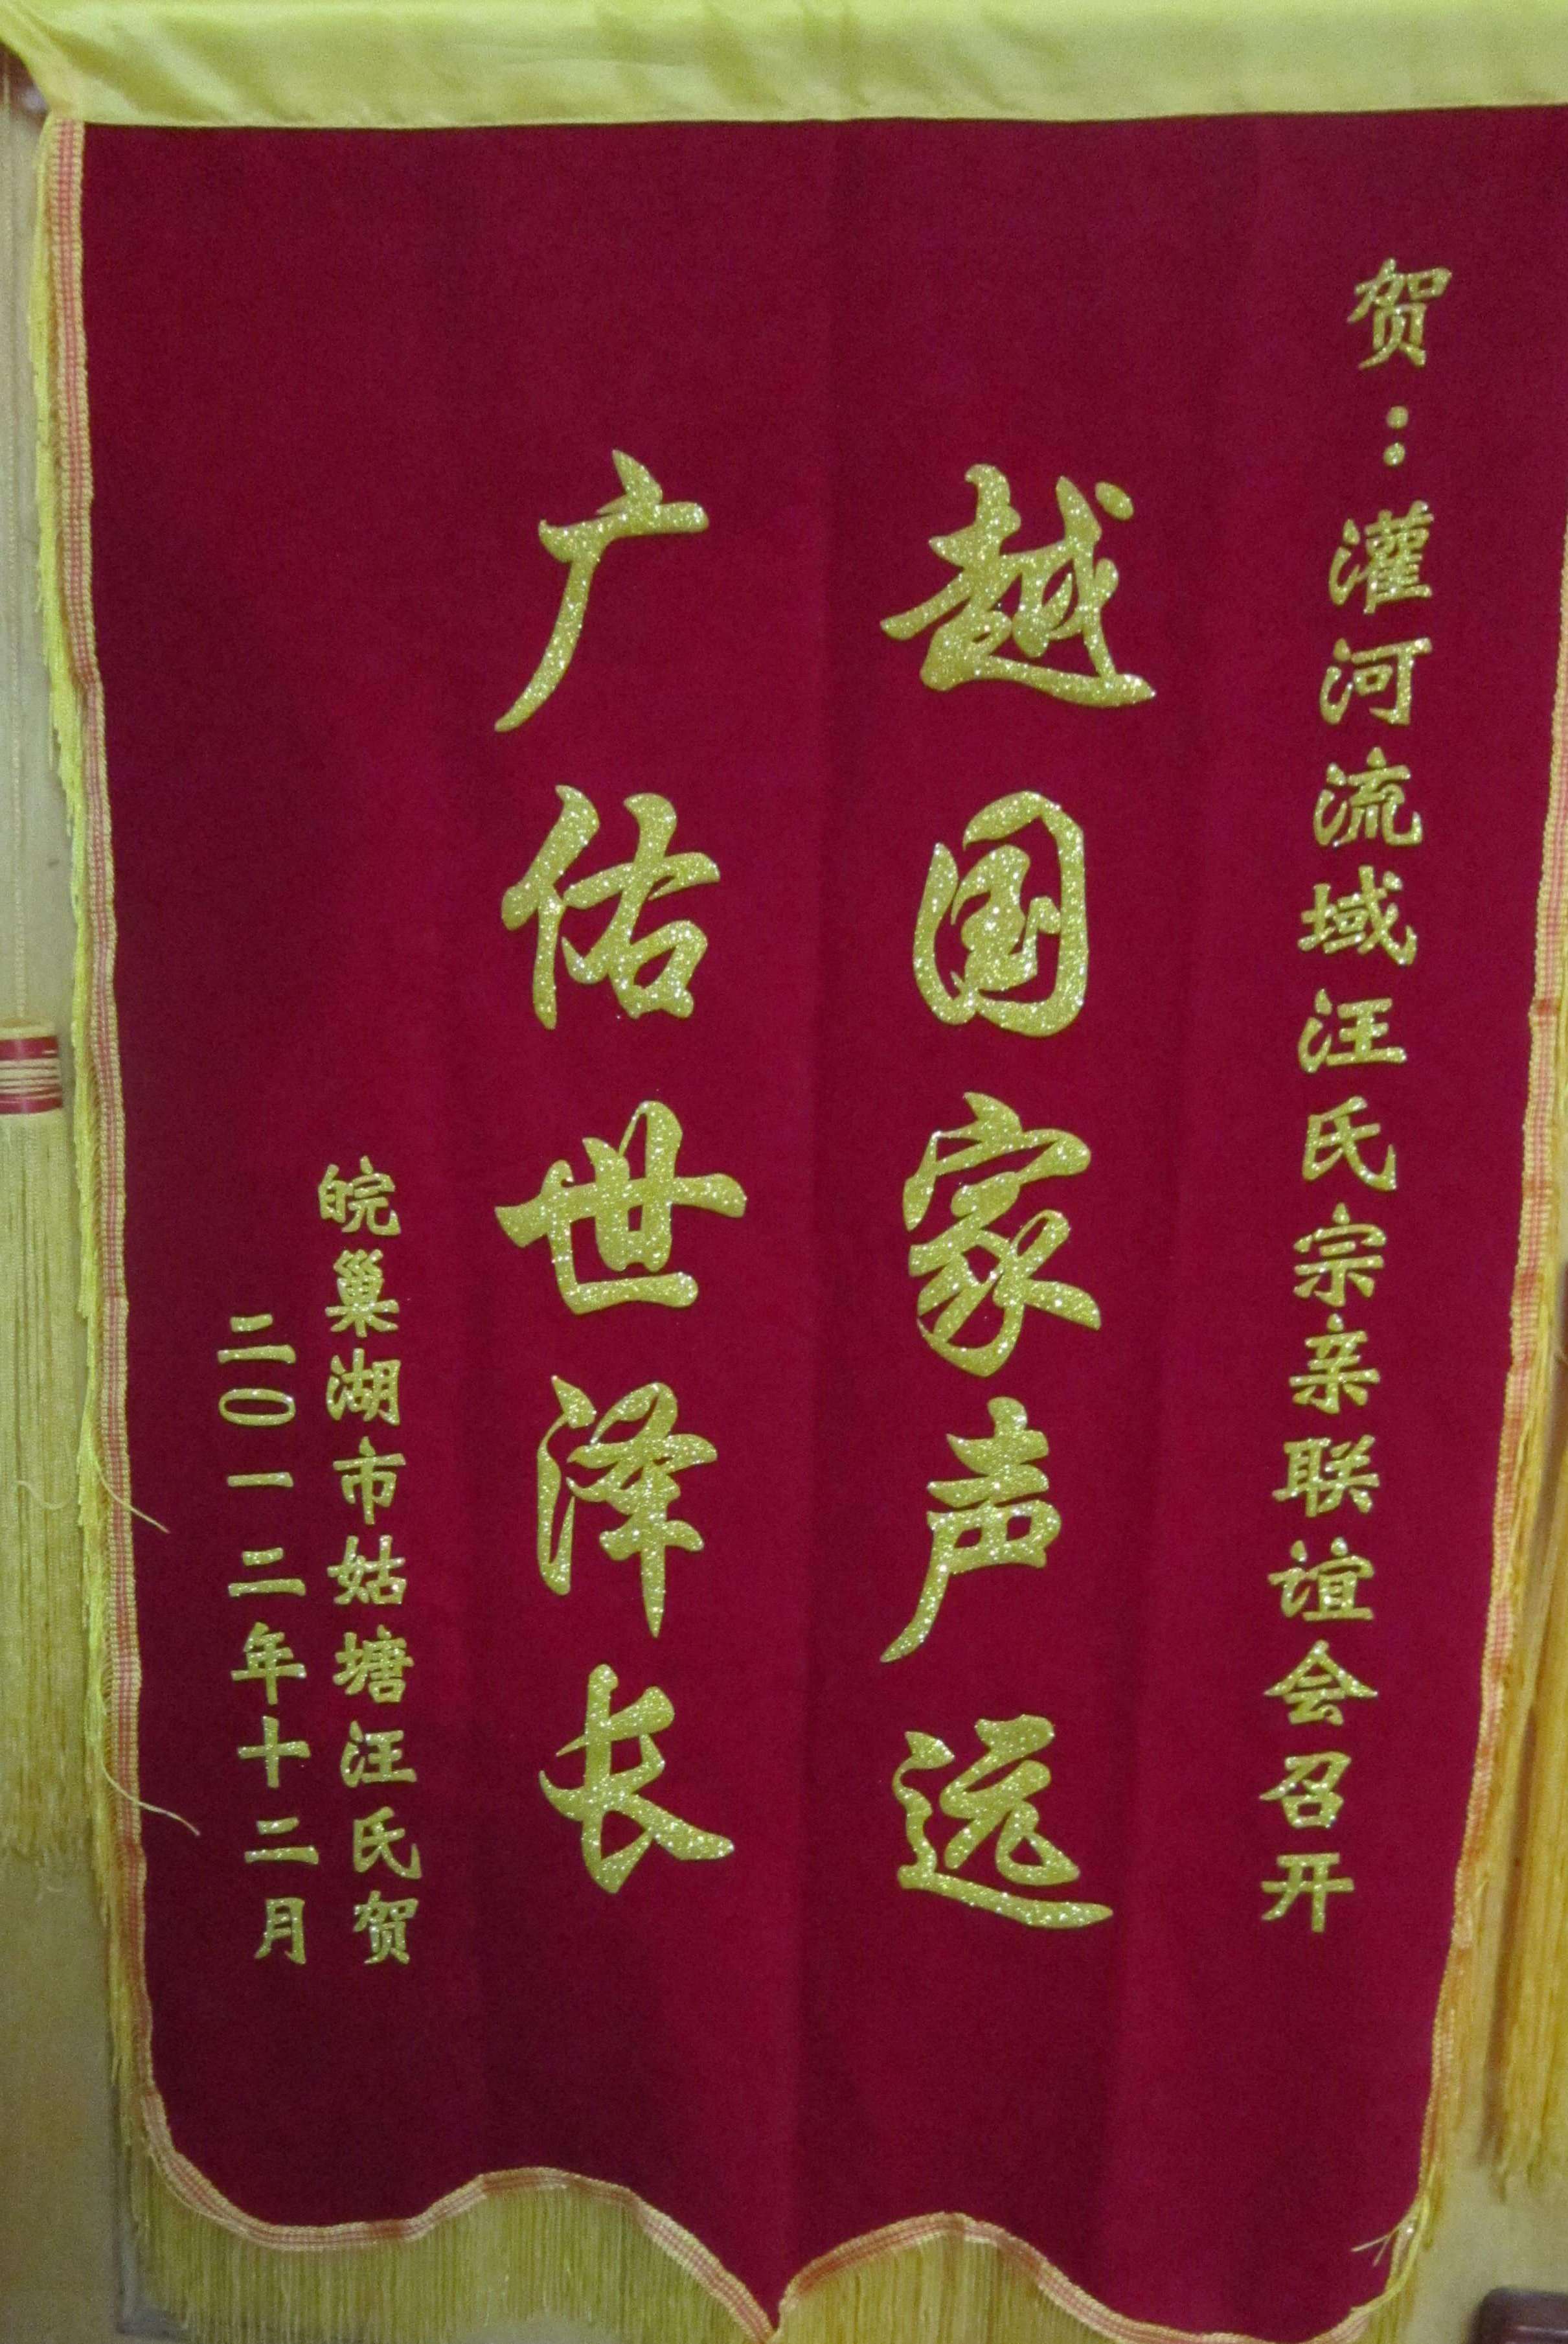 贺：灌河流域汪氏宗亲联谊会召开
越国家声远
广佑世泽长
皖巢湖市姑塘汪氏贺
二〇一二年十二月